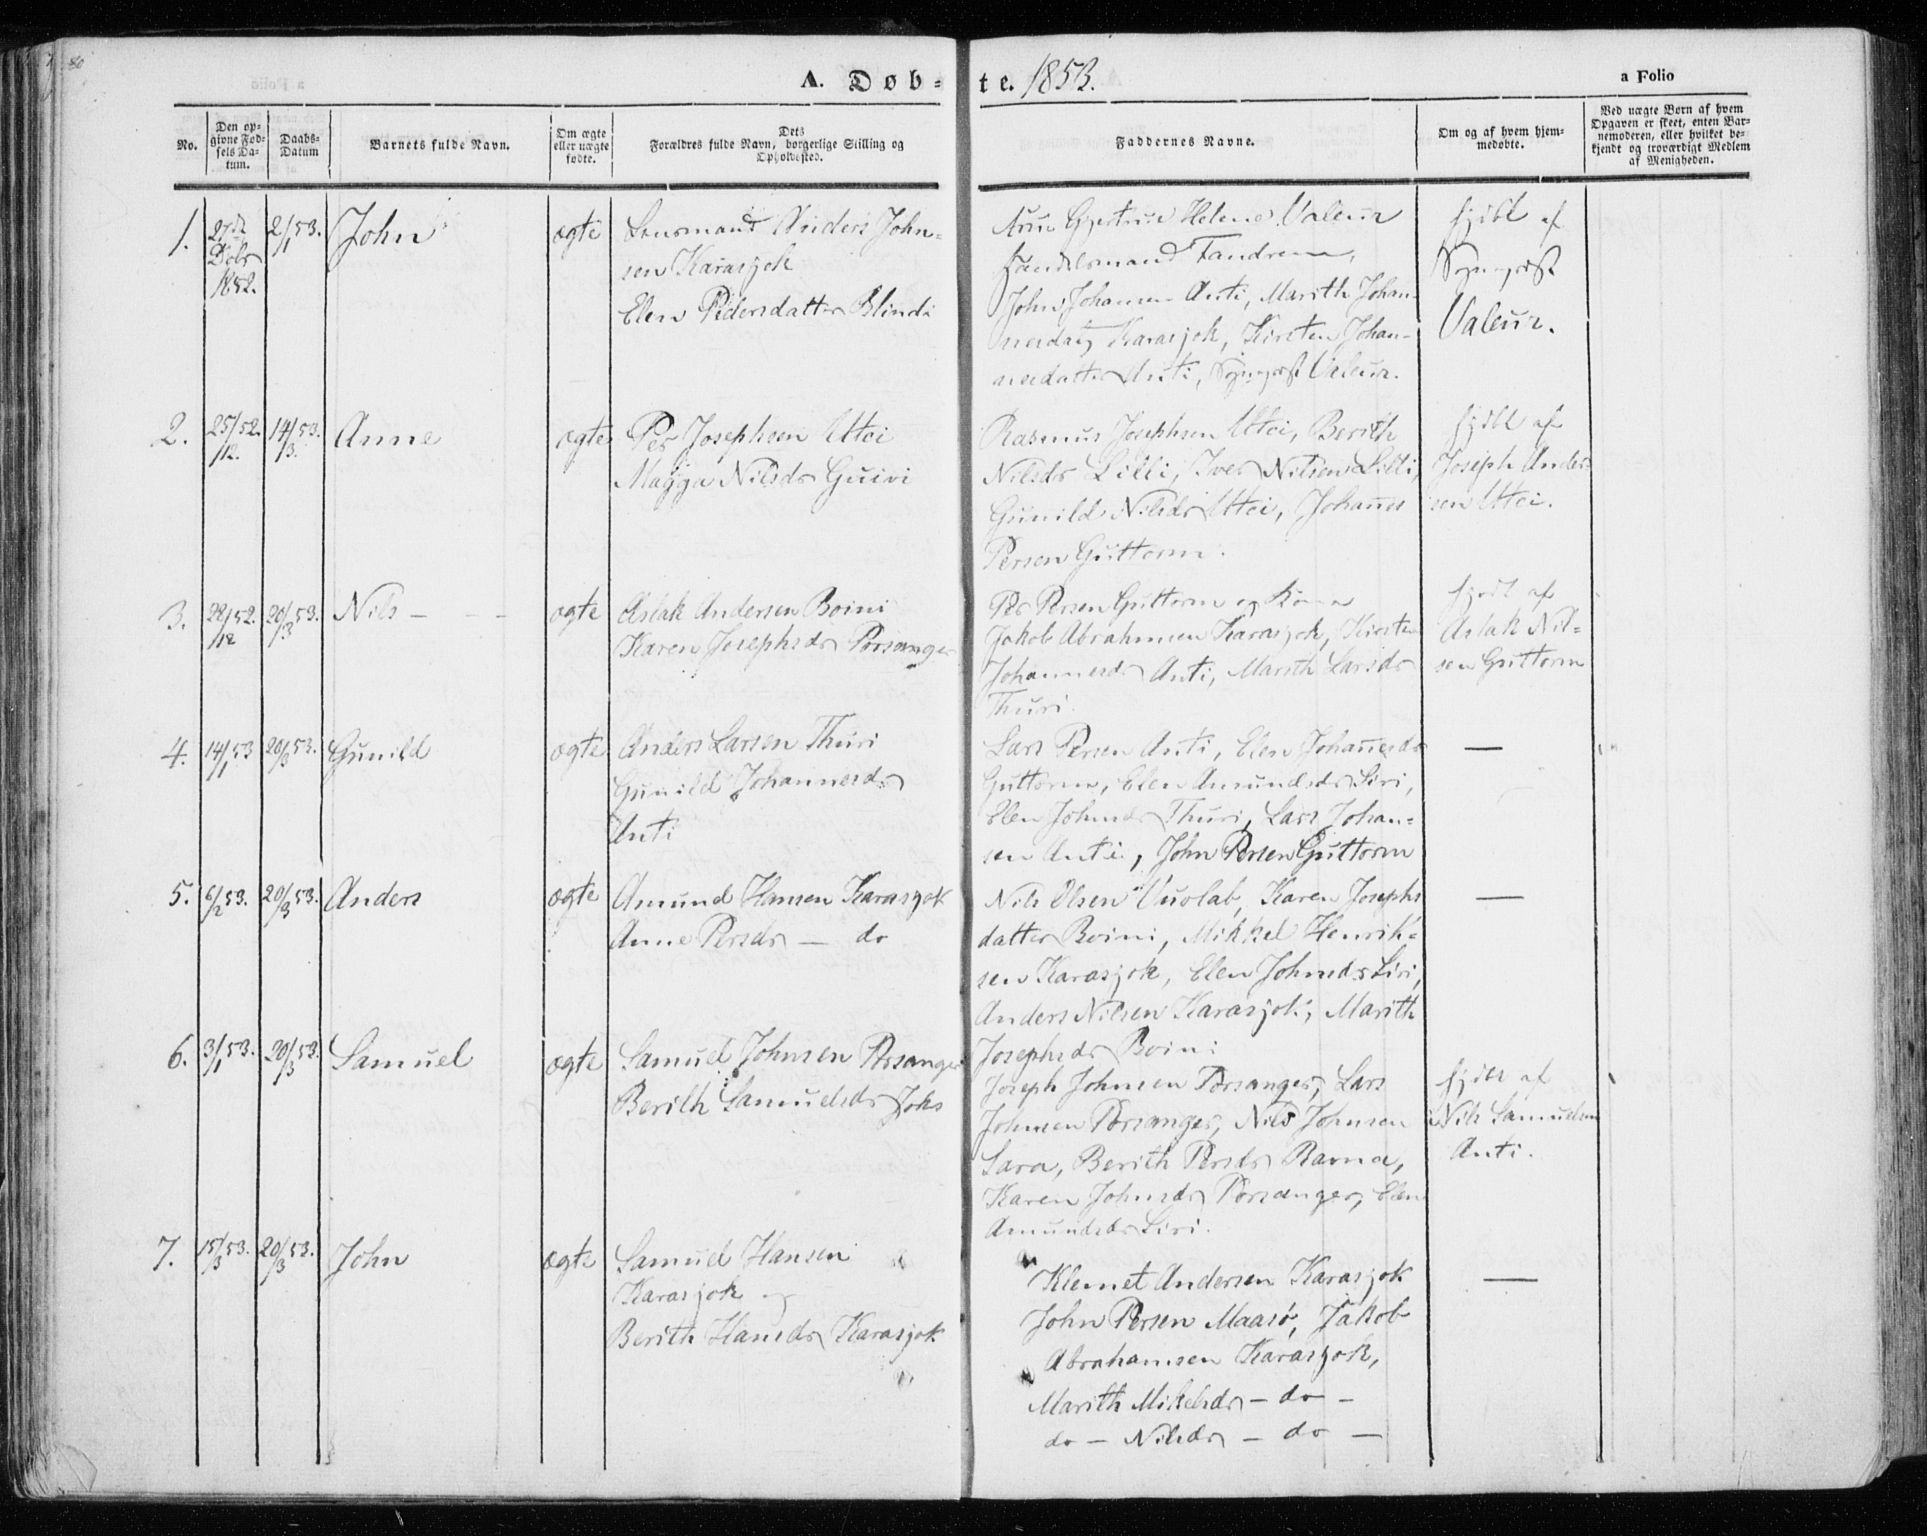 80
A. Døb- te. 1853.
a Folio
No.
Den opgivne Fødsels Datum.
Daabs-Datum
Barnets fulde Navn.
Om ægte eller uægte fødte.
Forældres fulde Navn, borgerlige Stilling og Opholdssted.
Faddernes Navne.
Om og af hvem hjemmedøbte.
Ved uægte Børn af hvem Opgaven er skeet, enten Barnemoderen, eller hvilket bekjendt og troværdigt Medlem af Menigheden.
1.
27de
Dcbr
1852.
2/1 53.
John
ægte
Lensmand Anders John-
sen Karasjok
Elen Pedersdatter Blindi
Gjertrue Helene Valeur
Handelsmand Fandrem,
John Johansen Anti, Marith Johan-
nesdatr Karasjok, Kirsten Johan-
nesdatter Anti, Sognepræst Valeur.
hjdbt af
Sognepræst
Valeur.
2.
25/12 52.
14/3 53.
Anne
ægte
Per Josephsen Uttsi
Magga Nilsdr Guivi
Rasmus Josephsen Uttsi, Berith
Nilsdr Lilli, Iver Nilsen Lilli,
Gunild Nilsdr Uttsi, Johanes
Persen Guttorm.
hjdbt af
Joseph Ander-
sen Uttsi.
3.
22/12 52.
20/3 53.
Nils - - -
ægte
Aslak Andersen Boini
Karen Josephsdr Porsanger
Per Persen Guttorm og Kone
Jakob Abrahamsen Karasjok, Kirsten
Johannesdr Anti, Marith Larsdr
Thuri.
hjdbt af
Aslak Nil-
sen Guttorm
4.
14/1 53
20/3 53.
Gunild
ægte
Anders Larsen Thuri
Gunild Johannesdr
Anti
Lars Persen Anti, Elen Johanesdr
Guttorm, Elen Amundsdr Siri,
Elen Johnsdr Thuri, Lars Johan-
sen Anti, John Persen Guttorm
—
5.
6/2 53.
20/3 53.
Anders
ægte
Amund Hansen Karasjok
Anne Persdr — do
Nils Olsen Vuolab, Karen Josephs
datter Boini, Mikkel Henrik-
sen Karasjok, Elen Johnsdr Siri,
Anders Nilsen Karasjok, Marith
Josephsdr Boini
—
6.
3/1 53.
20/3 53.
Samuel
ægte
Samuel Johnsen Porsanger
Berith Samuelsdr Joks
Joseph Johnsen Porsanger, Lars
Johnsen Porsanger, Nils Johnsen
Sara, Berith Persdr Ravna,
Karen Johnsdr Porsanger, Elen
Amundsdr Siri.
hjdbt af
Nils Samuelsen
Anti.
7.
15/3 53.
20/3 53.
John
ægte
Samuel Hansen
Karasjok og
Berith Hansdr Karasjok
Klemet Andersen Karasjok
John Persen Maasø, Jakob
Abrahamsen Karasjok,
Marith Mikelsdr - do -
do - Nilsdr - do —
—